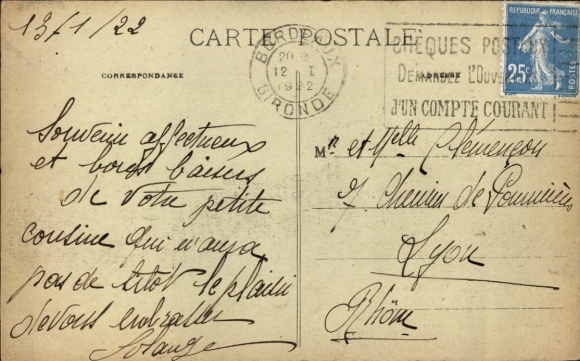 13/1/22
CARTE POSTALE
CORRESPONDANCE
ADRESSE
BORDEAUX
12 I
1922
GIRONDE
CHÈQUES POSTAUX
DEMANDEZ L'OUV
D'UN COMPTE COURANT
RÉPUBLIQUE FRANÇAISE
25c
POSTES
Souvenir affectueux
et bons baisers
de votre petite
cousine qui n'aura
pas de sitôt le plaisir
de vous embrasser
Solange
Mr et Melle Clémençon
7 Chemin de
Lyon
Rhône